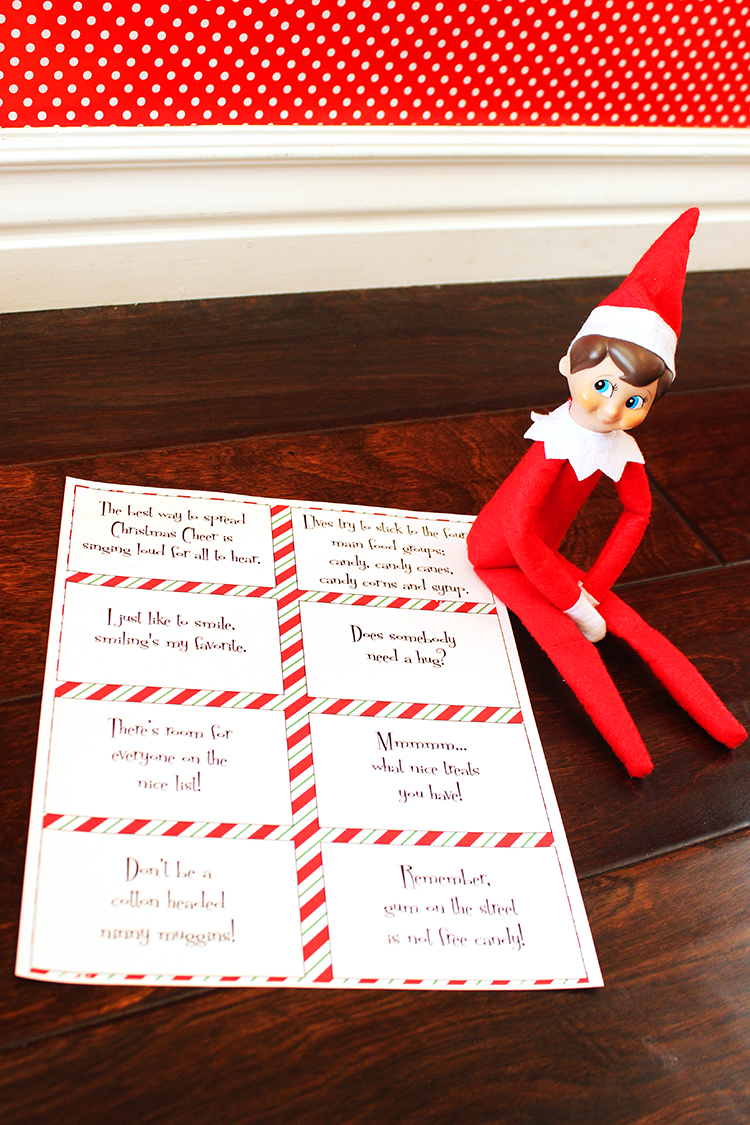 The best way to spread
Christmas Cheer is
singing loud for all to hear.
Elves try to stick to the four
main food groups:
candy, candy canes,
candy corns and syrup.
I just like to smile,
smiling's my favorite.
Does somebody
need a hug?
There's room for
everyone on the
nice list!
Mmmmm...
what nice treats
you have!
Don't be a
cotton headed
ninny muggins!
Remember,
gum on the street
is not free candy!